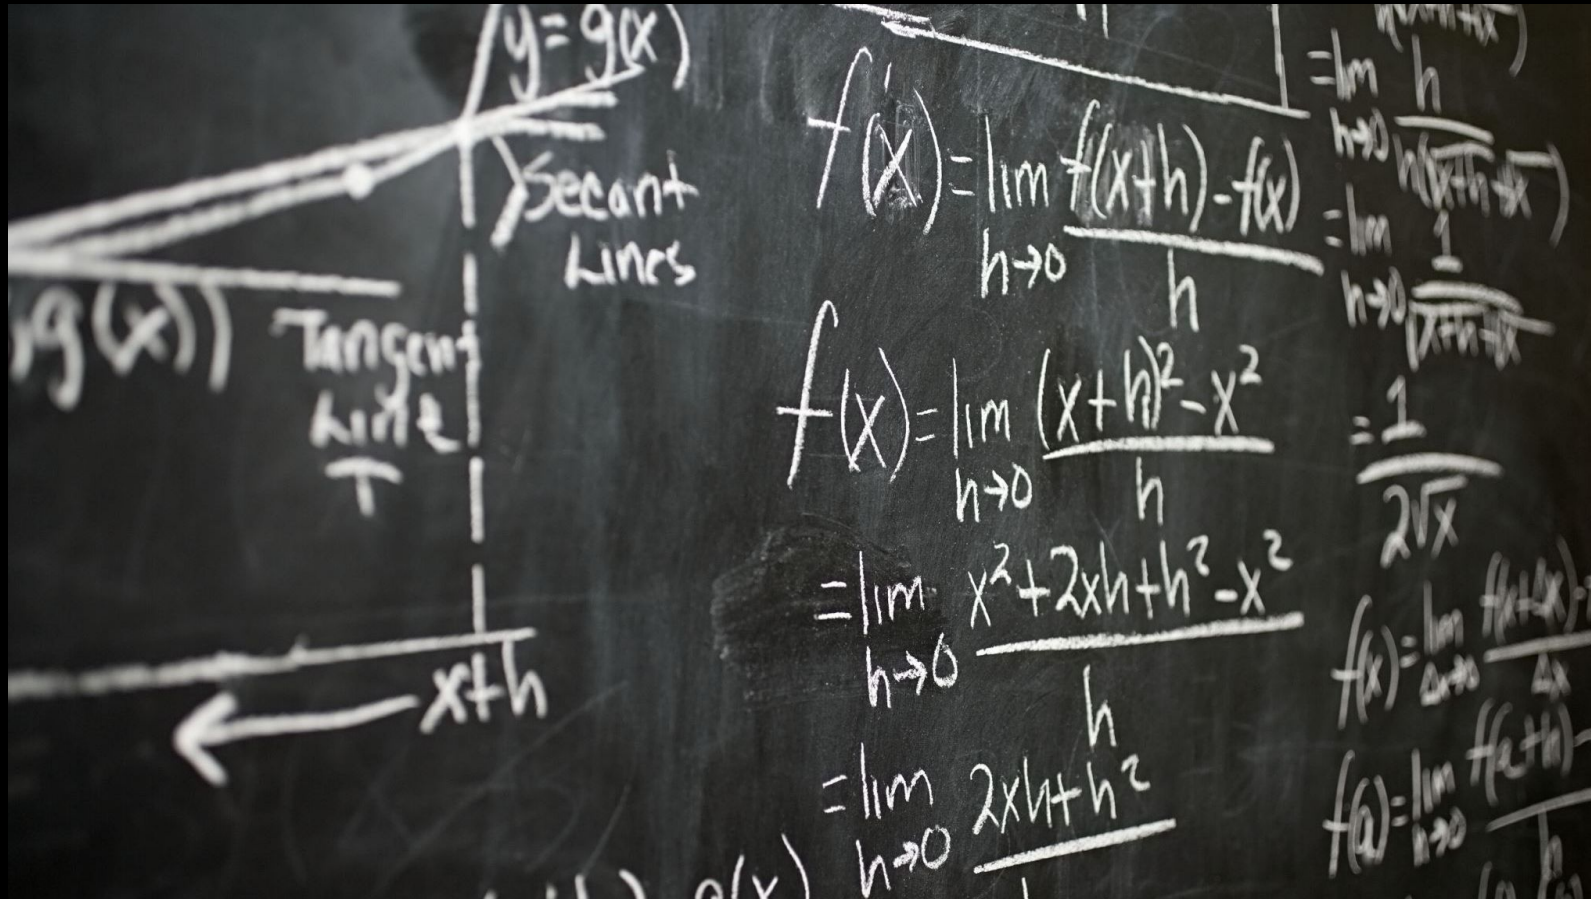 y = g(x)
Secant
Lines
g(x))
Tangent
Line
T
x+h
f'(x) = lim h→0 f(x+h) - f(x) / h
f(x) = lim h→0 (x+h)² - x² / h
= lim h→0 x² + 2xh + h² - x² / h
= lim h→0 2xh + h²
= lim h→0 h / h(√x+h + √x)
= lim h→0 1 / √x+h + √x
= 1 / 2√x
f(x) = lim Δx→0 f(x+Δx) - / Δx
f(a) = lim h→0 f(a+h) - / h